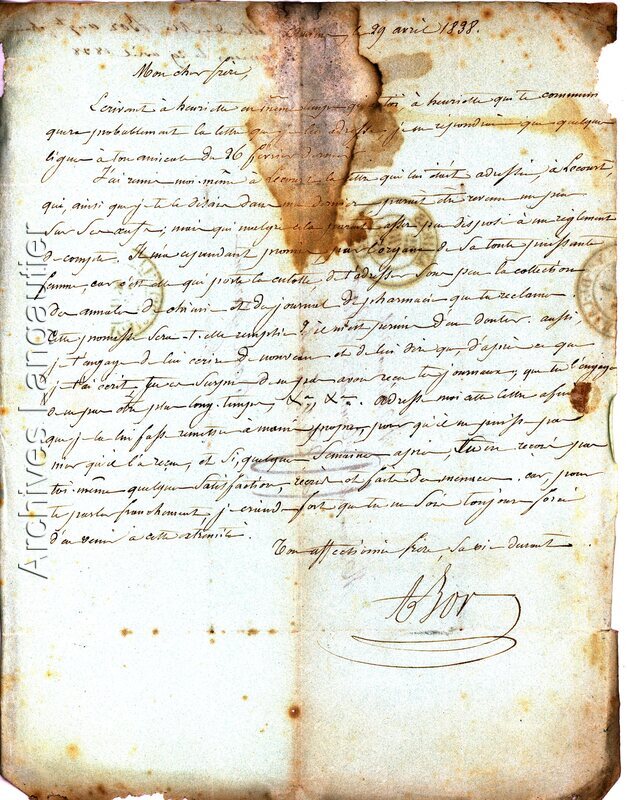 le 29 avril 1838.
Mon cher frère,
Ecrivant à henriette en même temps que toi à henriette qui te communi
quera probablement la lettre que je lui adresse, je ne répondrai que quelque
ligne à ton amicale du 26 février dernier.
J'ai remis moi-même à Lecourt la lettre qui lui était adressée, à Lecourt,
qui, ainsi que je te le disais dans ma dernière parait être revenu un peu
sur son compte; mais qui malgré cela parait assez peu disposé à un règlement
de compte. Il m'a cependant promis par l'organe de sa toute puissante
femme, car c'est elle qui porte la culotte, de t'adresser sous peu la collection
des annales de chimie et du journal de pharmacie que tu réclame.
Cette promesse sera-t-elle remplie? il m'est permis d'en douter. aussi,
je t'engage de lui écrire de nouveau et de lui dire que, d'après ce que
je t'ai écrit, tu es surpris de n'avoir pas reçu les journaux, que tu l'engage
de ne pas être plus long-temps, &a, &a. Adresse moi cette lettre afin
que je la lui fasse remettre à main propre, pour qu'il ne puisse pas
nier qu'il l'a reçue, et si, quelque semaine après, tu n'en reçois pas
toi même quelque satisfaction, récris et fais des menaces. car pour
te parler franchement je crains fort que tu ne sois toujours forcé
d'en venir à cette extrémité.
Ton affectionné frère, sa vie durant
A Bor
Archives Langautier